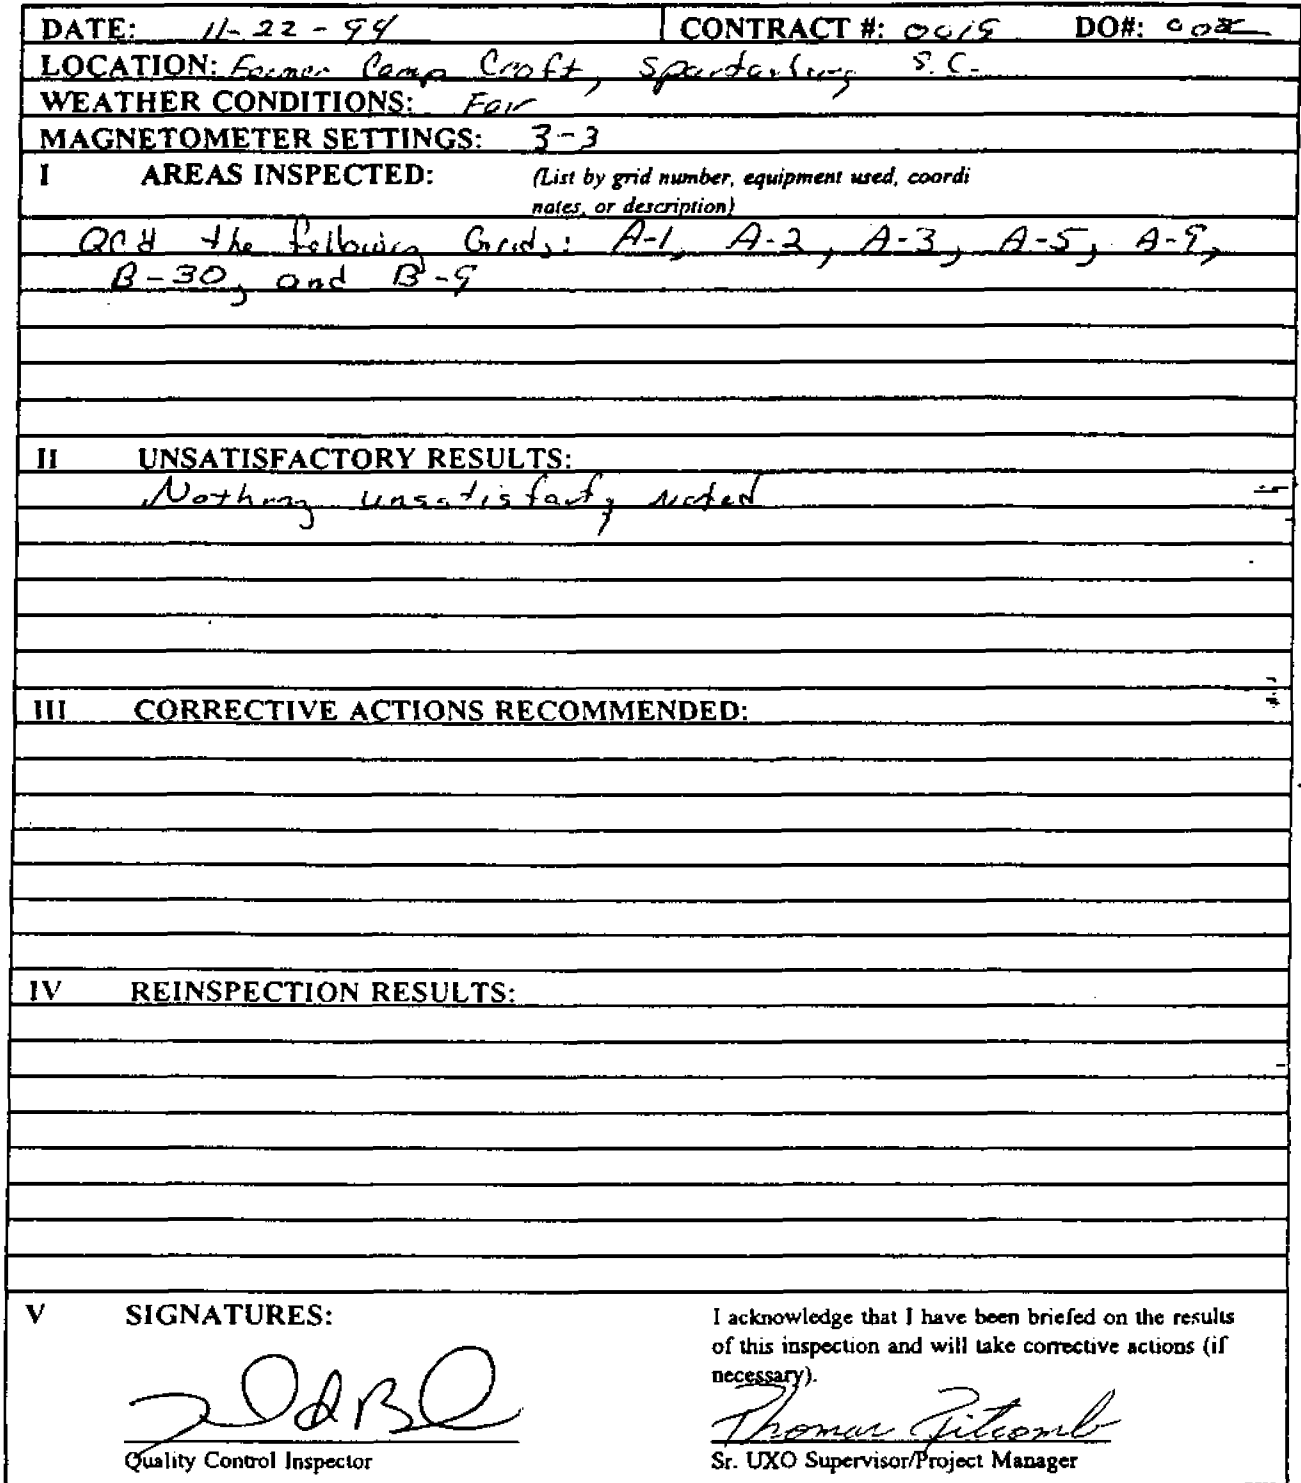 DATE: 11-22-94 CONTRACT #: 0019 DO#:
LOCATION: Former Camp Croft, Spartanburg S.C.
WEATHER CONDITIONS: Fair
MAGNETOMETER SETTINGS: 3-3
I AREAS INSPECTED: (List by grid number, equipment used, coordi
nates, or description)
QC'd the following Grids: A-1, A-2, A-3, A-5, A-9,
B-30, and B-9
II UNSATISFACTORY RESULTS:
Nothing unsatisfacty noted
III CORRECTIVE ACTIONS RECOMMENDED:
IV REINSPECTION RESULTS:
V SIGNATURES:
I acknowledge that I have been briefed on the results
of this inspection and will take corrective actions (if
necessary).
Thomas
Quality Control Inspector
Sr. UXO Supervisor/Project Manager